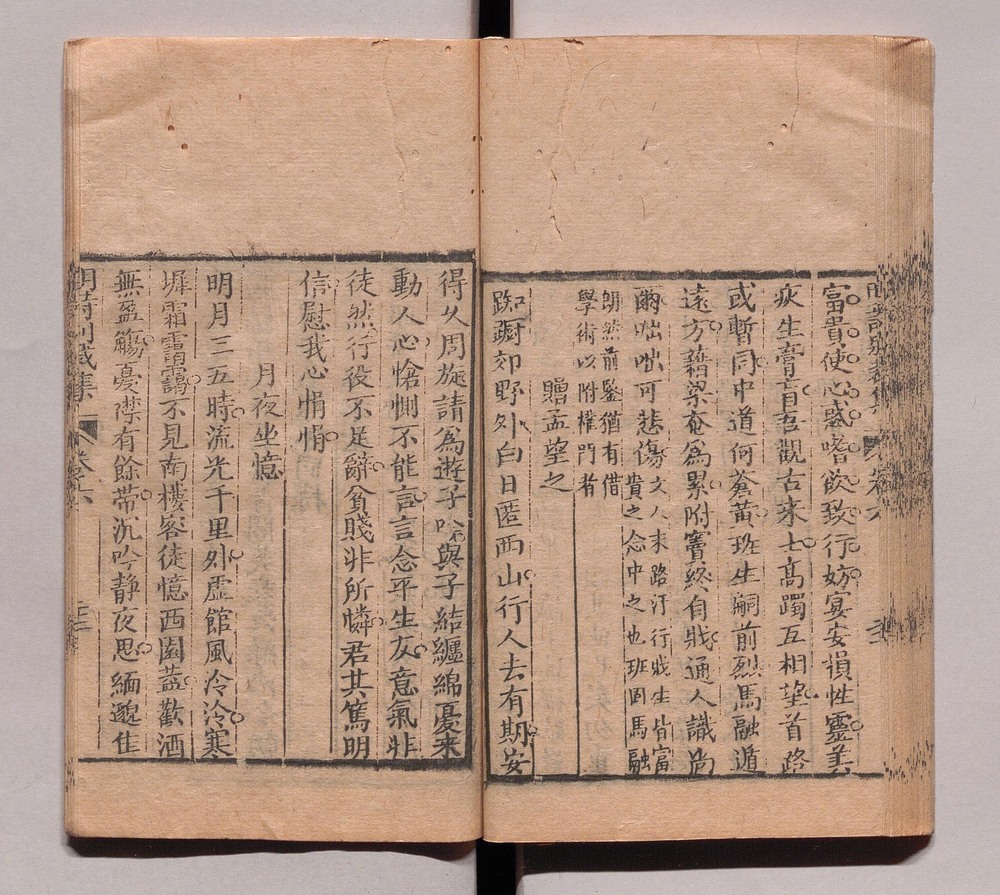 富貴使心惑嗜欲致行妨宴安損性靈美
疢生膏肓吾觀古來士高躅互相望首路
或暫同中道何蒼黃班生嗣前烈馬融遁
遠方藉梁奄為累附竇終自戕通人識尚
爾咄咄可悲傷文人末路汙行戕生皆富
貴之念中之也班固馬融
朗然前鑒猶有借
學術以附權門者
贈孟望之
踟躕郊野外白日匿西山行人去有期安
得久周旋請為遊子吟與子結纏綿憂來
動人心愴惻不能言言念平生友意氣非
徒然行役不足辭貧賤非所憐君其篤明
信慰我心悁悁
月夜坐憶
明月三五時流光千里外虛館風泠泠寒
墀霜靄靄不見南樓客徒憶西園蓋歡酒
無盈觴憂襟有餘帶沉吟静夜思緬邈佳
明詩別裁集 卷六